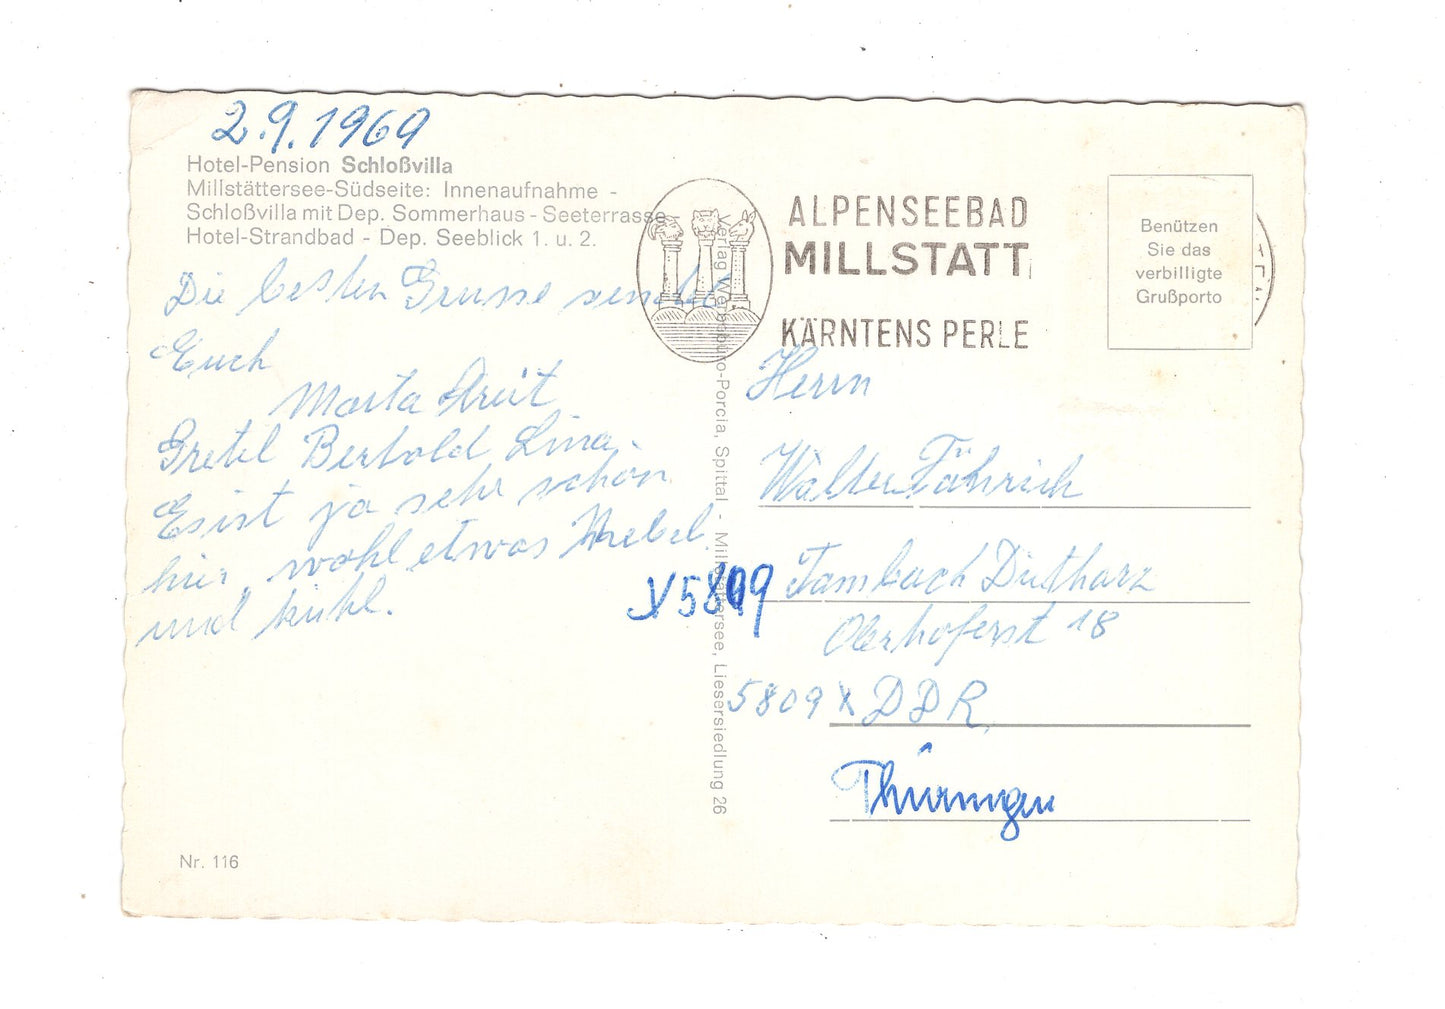 2.9.1969
Hotel-Pension Schloßvilla
Millstättersee-Südseite: Innenaufnahme -
Schloßvilla mit Dep. Sommerhaus - Seeterrasse
Hotel-Strandbad - Dep. Seeblick 1. u. 2.
Die besten Grusse sendet
Euch
Marta
Gretel Bertold Lina.
Es ist ja sehr schön
hier, wohl etwas Nebel
und kühl.
Nr. 116
Verlag Werbebüro-Porcia, Spittal - Millstättersee, Liesersiedlung 26
ALPENSEEBAD
MILLSTATT
KÄRNTENS PERLE
Benützen
Sie das
verbilligte
Grußporto
Herrn
Walter Fährich
X5809 Tambach Dietharz
Oberhoferst 18
5809 X DDR
Thüringen